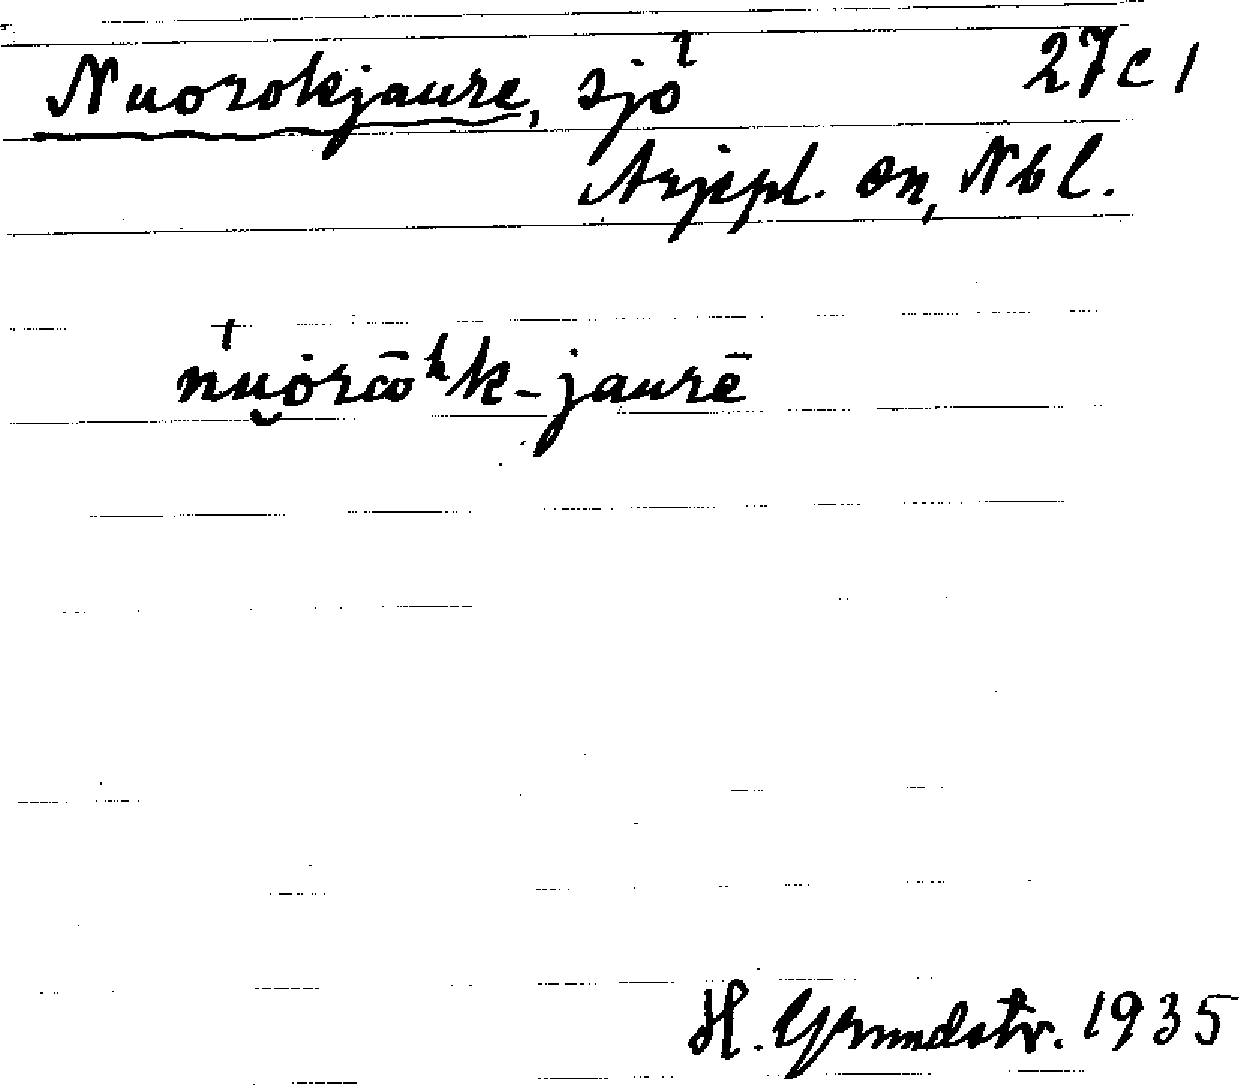 Nuorokjaure, sjö 27c1
Arjepl. sn, Nbl.
nu̯òrɷ̄ʰk-jaurē
H. Grundstr. 1935